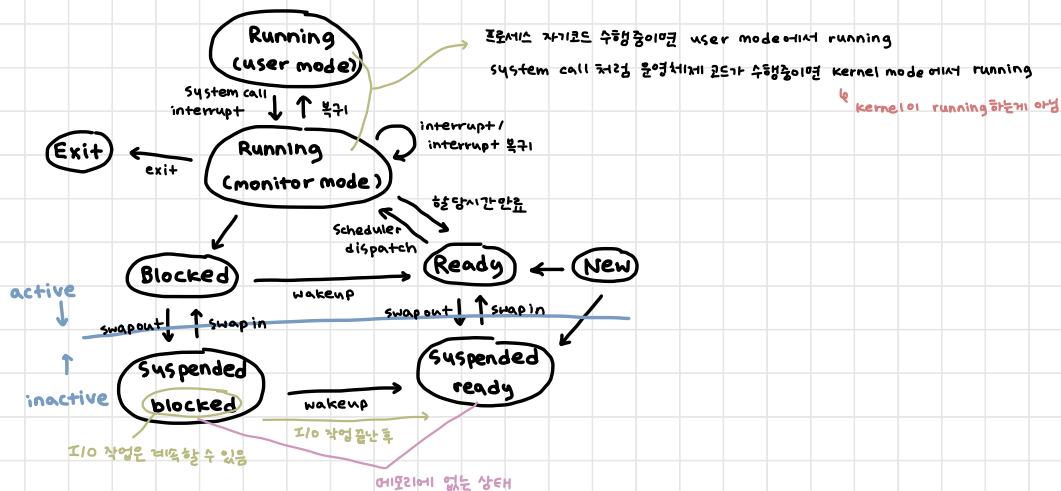 Running
(user mode)
프로세스 자기코드 수행중이면 user mode에서 running
system call 처럼 운영체제 코드가 수행중이면 kernel mode에서 running
↳ kernel이 running하는게 아님
system call
interrupt
복귀
Running
(monitor mode)
interrupt /
interrupt 복귀
Exit
exit
할당시간 만료
scheduler
dispatch
Blocked
wakeup
Ready
New
active
swapout
swap in
swapout
swap in
inactive
Suspended
blocked
wakeup
Suspended
ready
I/O 작업 끝난 후
I/O 작업은 계속할 수 있음
메모리에 없는 상태